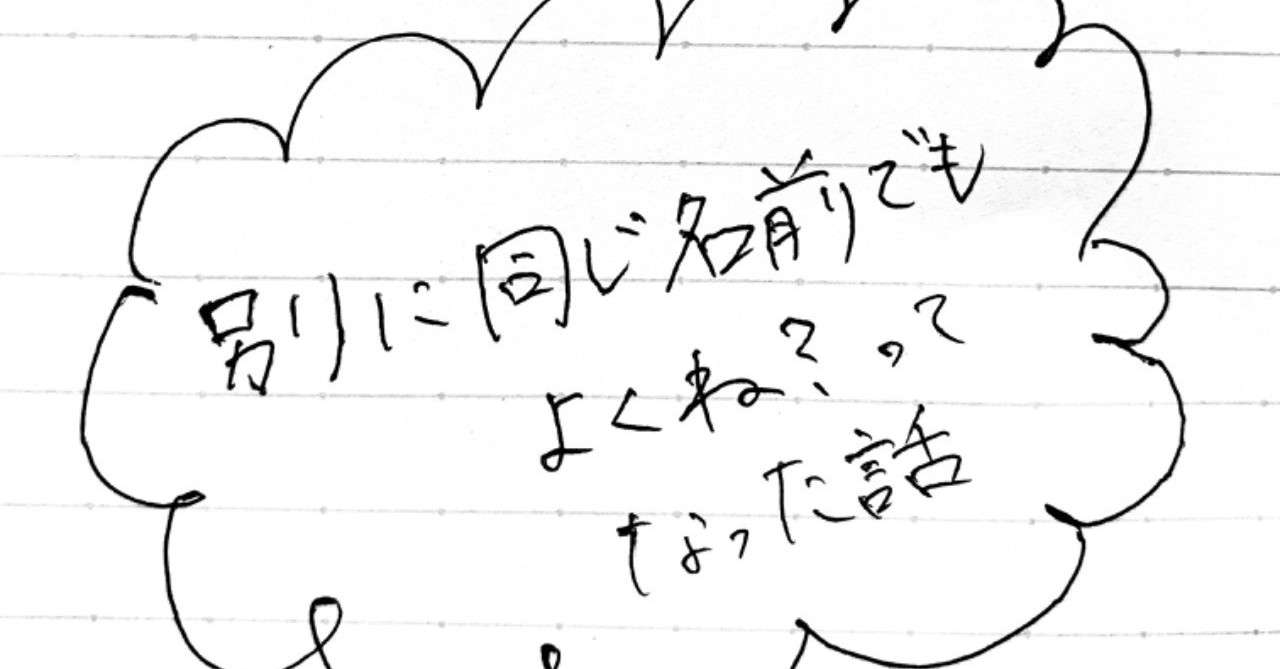 別に同じ名前でも
よくね？って
なった話